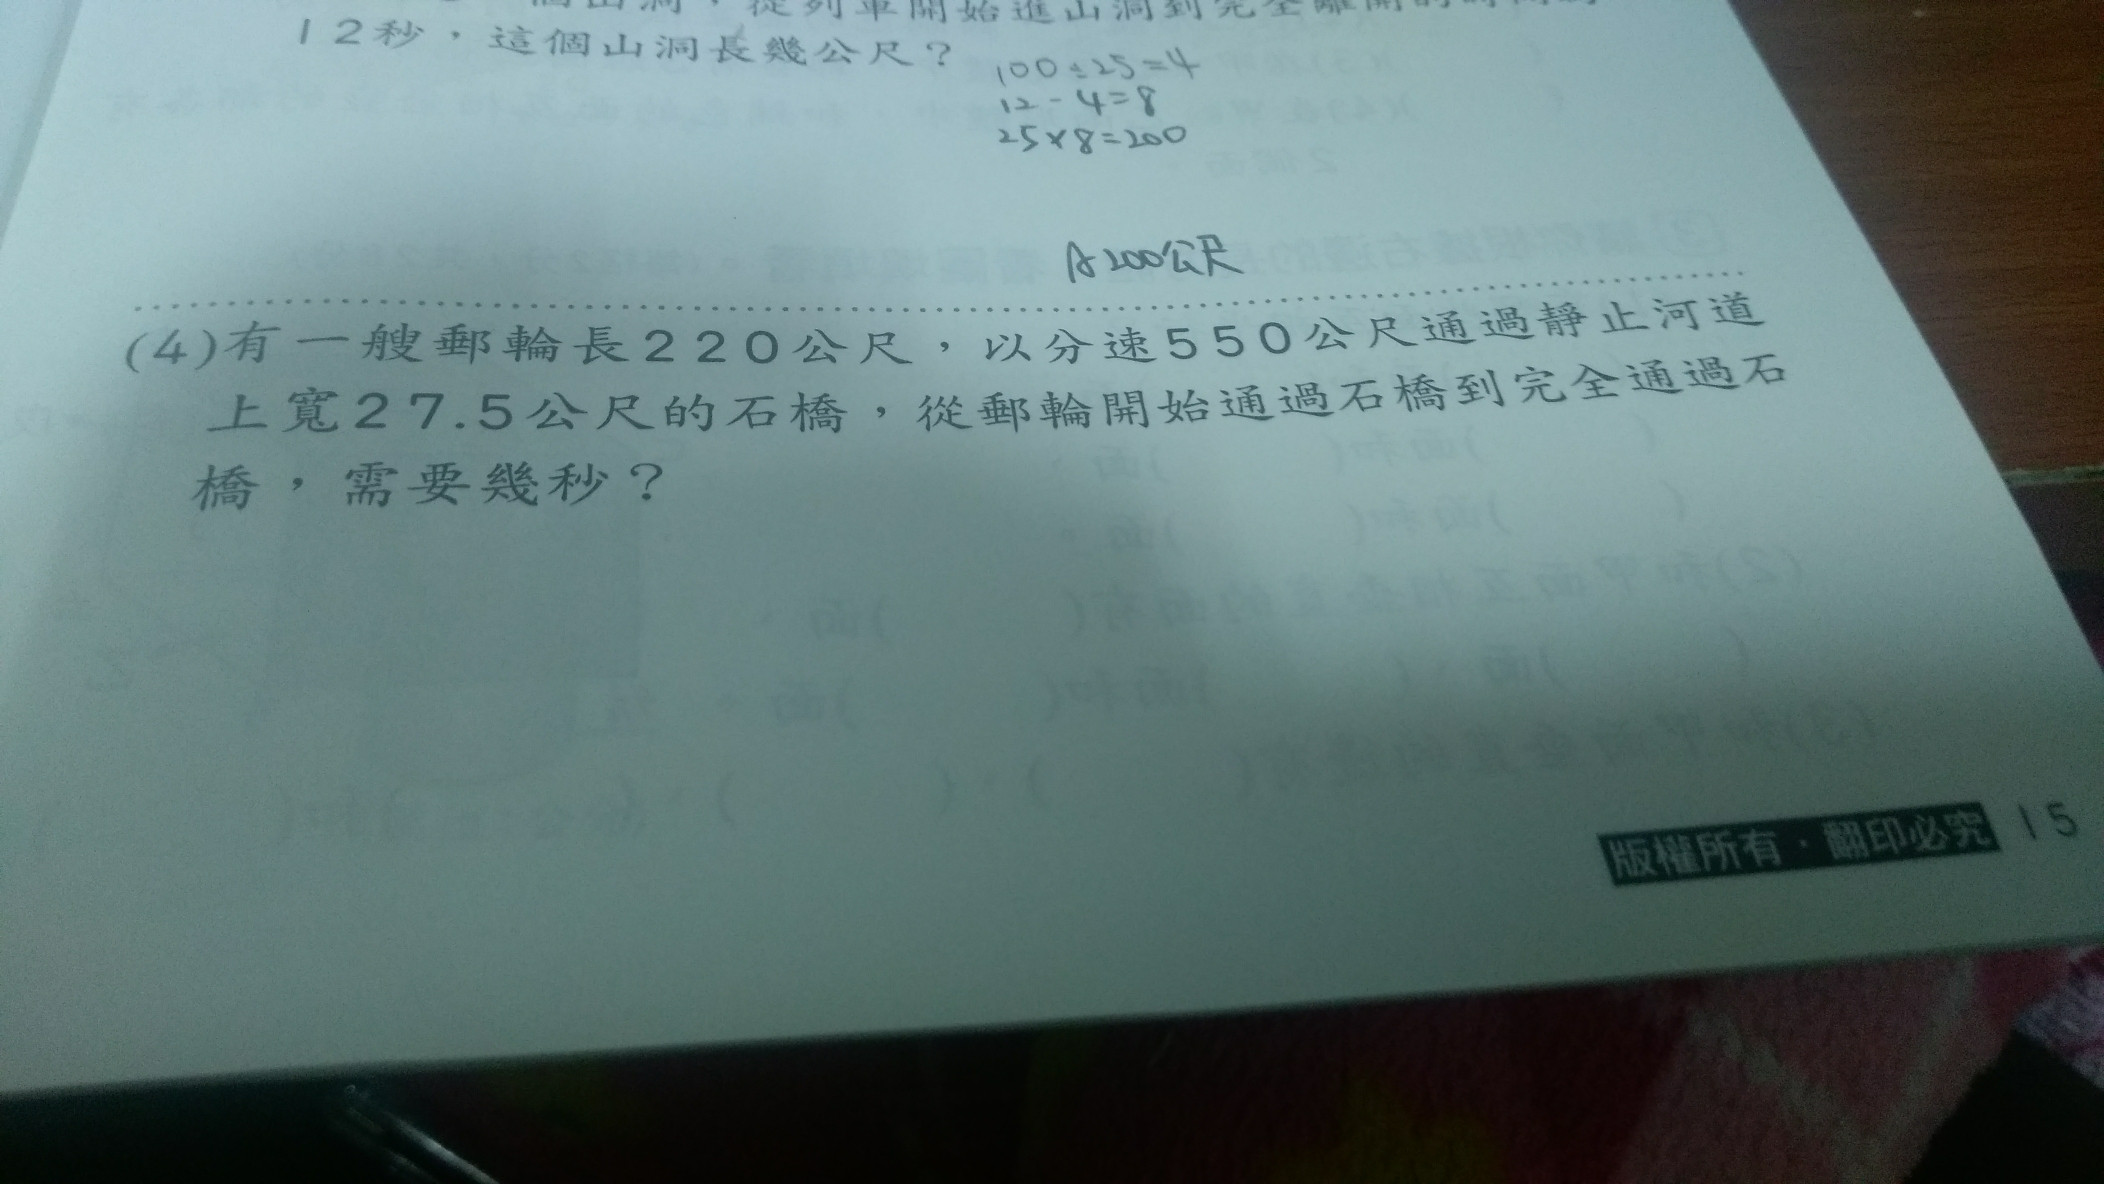 個山洞，從列車開始進山洞到完全離開的時間為
12秒，這個山洞長幾公尺？
100÷25=4
12-4=8
25×8=200
A 200公尺
(4)有一艘郵輪長220公尺，以分速550公尺通過靜止河道
上寬27.5公尺的石橋，從郵輪開始通過石橋到完全通過石
橋，需要幾秒？
版權所有·翻印必究 15